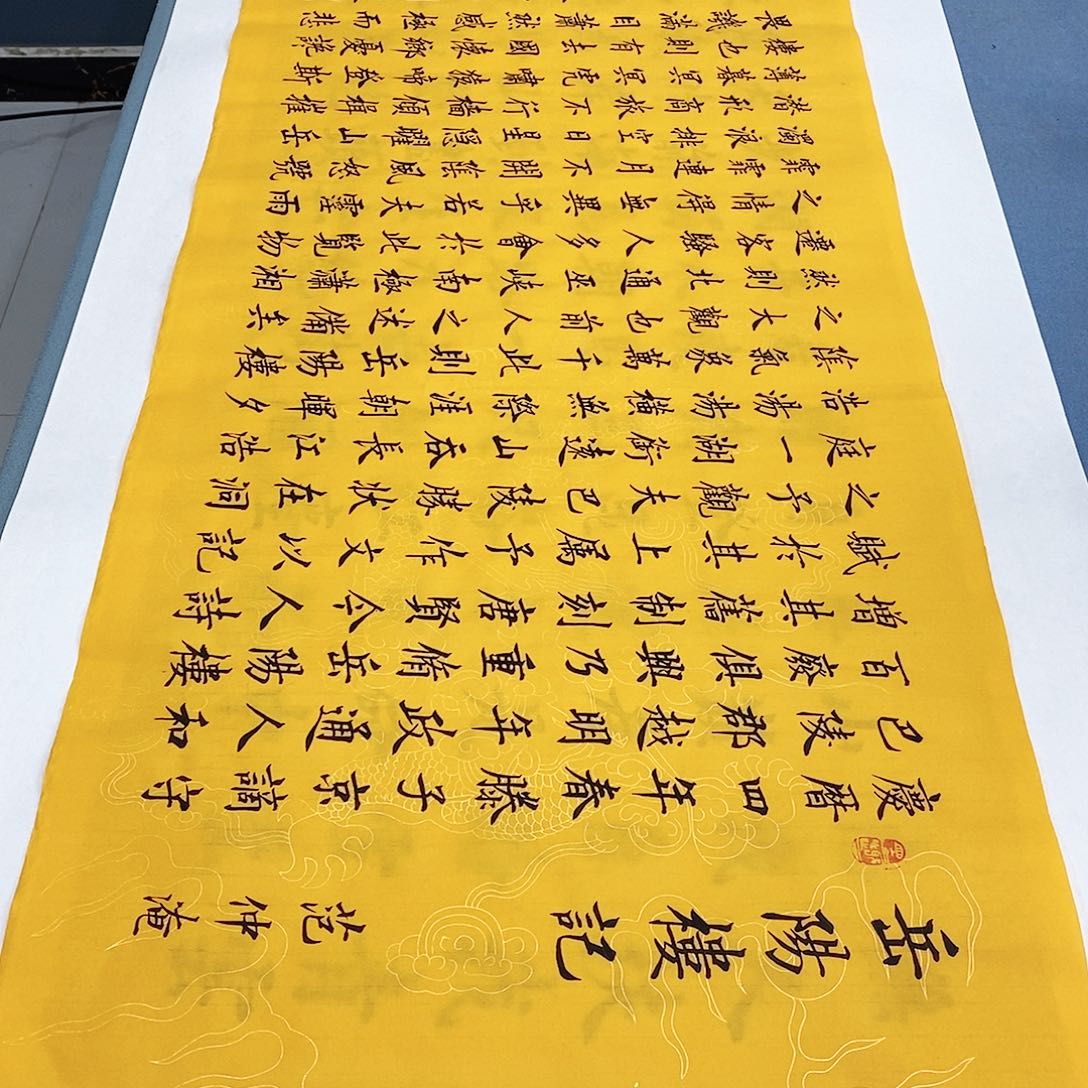 岳陽樓記
范仲淹
慶曆四年春滕子京謫守
巴陵郡越明年政通人和
百廢俱興乃重脩岳陽樓
增其舊制刻唐賢今人詩
賦於其上属予作文以記
之予觀夫巴陵勝狀在洞
庭一湖銜遠山吞長江浩
浩湯湯橫無際涯朝暉夕
陰氣象萬千此則岳陽樓
之大觀也前人之述備矣
然則北通巫峽南極瀟湘
遷客騷人多會於此覽物
之情得無異乎若夫霪雨
霏霏連月不開陰風怒號
濁浪排空日星隱曜山岳
潛形商旅不行檣傾楫摧
薄暮冥冥虎嘯猿啼登斯
樓也則有去國懷鄉憂讒
畏譏滿目蕭然感極而悲